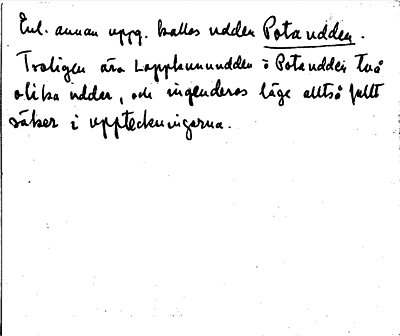 Enl. annan uppg. kallas udden Potaudden.
Troligen äro Lappkunnudden o Potaudden två
olika uddar, och ingenderas läge alltså fullt
säker i uppteckningarna.